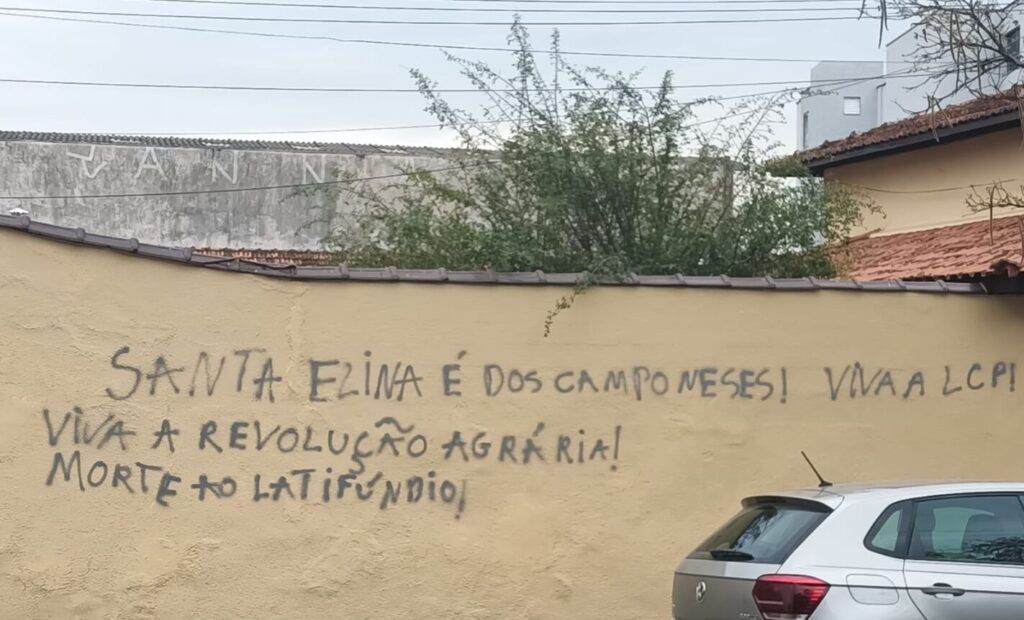 VANN
SANTA ELINA É DOS CAMPONESES! VIVA A LCP!
VIVA A REVOLUÇÃO AGRÁRIA!
MORTE AO LATIFÚNDIO!